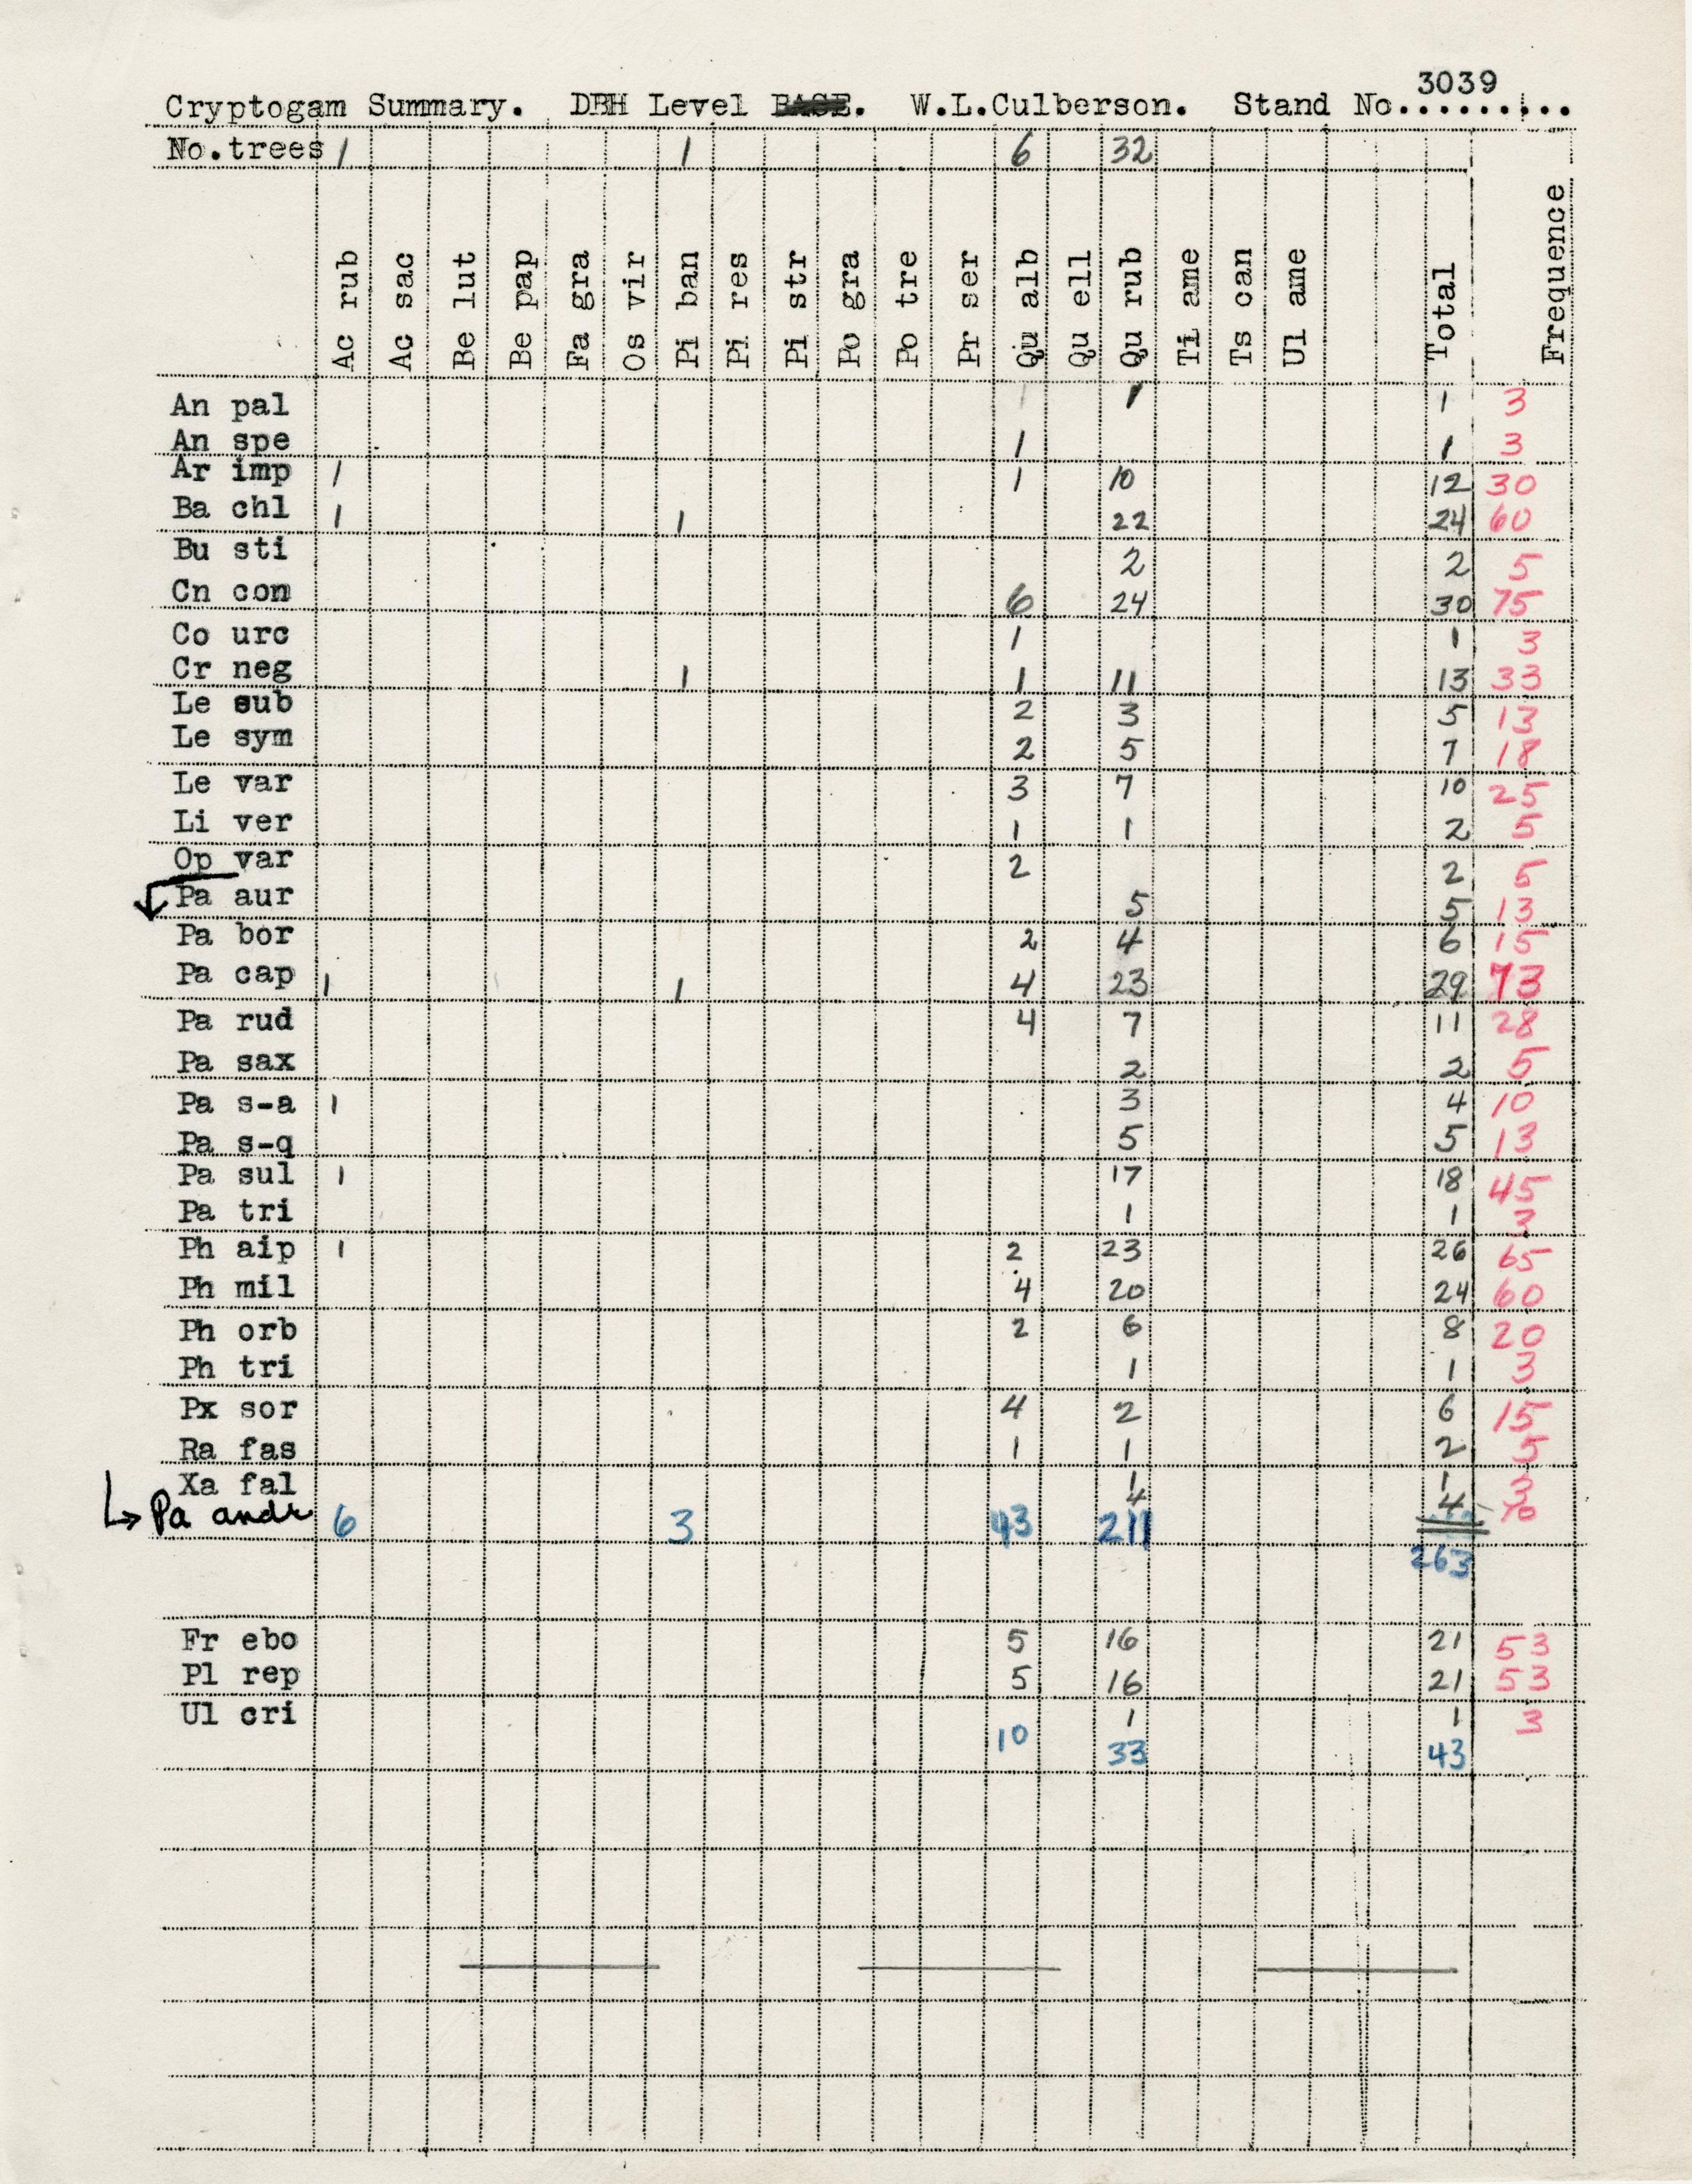 3039
Cryptogam Summary. DBH Level BASE. W.L.Culberson. Stand No.........
No.trees 1 1 6 32
Ac rub Ac sac Be lut Be pap Fa gra Os vir Pi ban Pi res Pi str Po gra Po tre Pr ser Qu alb Qu ell Qu rub Ti ame Ts can Ul ame Total Frequence
An pal 1 1 3
An spe 1 1 3
Ar imp 1 1 10 12 30
Ba chl 1 1 22 24 60
Bu sti 2 2 5
Cn con 6 24 30 75
Co urc 1 1 3
Cr neg 1 1 11 13 33
Le sub 2 3 5 13
Le sym 2 5 7 18
Le var 3 7 10 25
Li ver 1 1 2 5
Op var 2 2 5
Pa aur 5 5 13
Pa bor 2 4 6 15
Pa cap 1 1 4 23 29 73
Pa rud 4 7 11 28
Pa sax 2 2 5
Pa s-a 1 3 4 10
Pa s-q 5 5 13
Pa sul 1 17 18 45
Pa tri 1 1 3
Ph aip 1 2 23 26 65
Ph mil 4 20 24 60
Ph orb 2 6 8 20
Ph tri 1 1 3
Px sor 4 2 6 15
Ra fas 1 1 2 5
Xa fal 1 1 3
Pa andr 4 4 10
6 3 43 211
263
Fr ebo 5 16 21 53
Pl rep 5 16 21 53
Ul cri 1 1 3
10 33 43